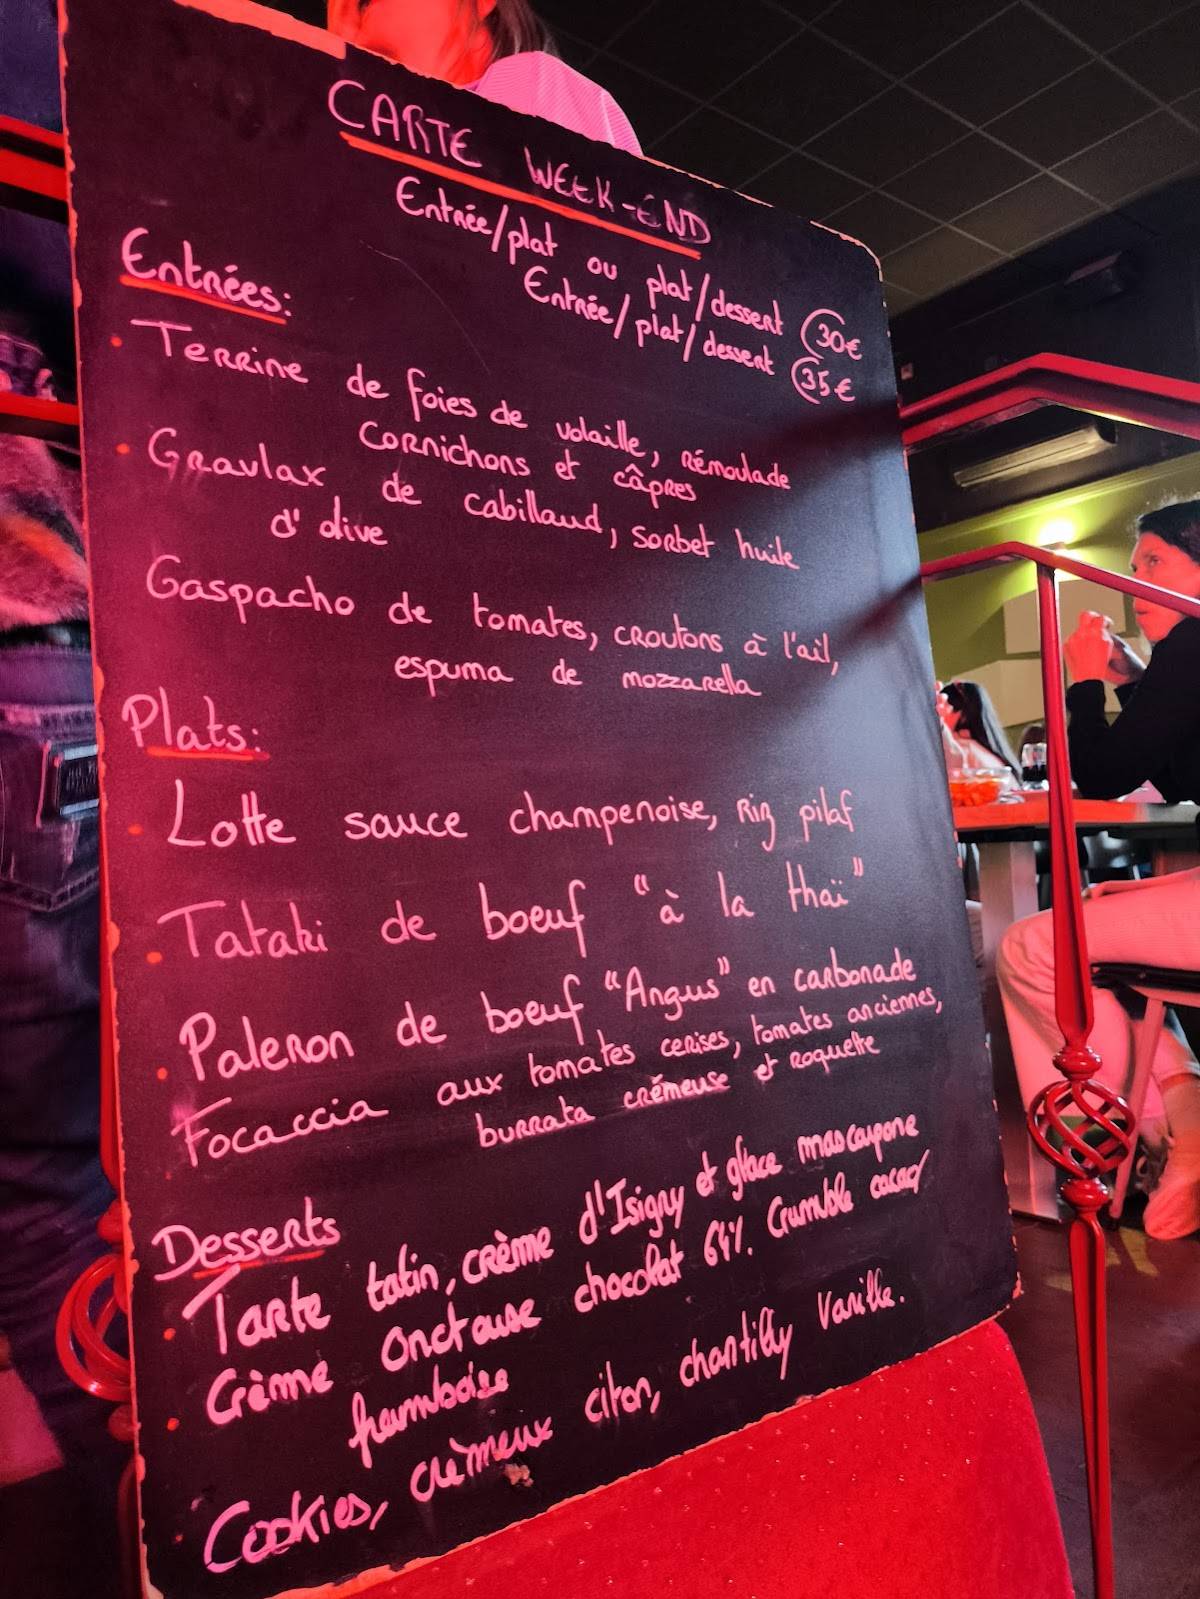 CARTE WEEK-END
Entrée/plat ou plat/dessert 30€
Entrée/plat/dessert 35€
Entrées:
• Terrine de foies de volaille, rémoulade
cornichons et câpres
• Gravlax de cabillaud, sorbet huile
d'olive
Gaspacho de tomates, croutons à l'ail,
espuma de mozzarella
Plats:
• Lotte sauce champenoise, Riz pilaf
• Tataki de boeuf "à la thaï"
• Paleron de boeuf "Angus" en carbonade
Focaccia aux tomates cerises, tomates anciennes,
burrata crémeuse et roquette
Desserts
• Tarte tatin, crème d'Isigny et glace mascarpone
• Crème onctueuse chocolat 64%. Crumble cacao
framboise
Cookies, crèmeux citron, chantilly vanille.